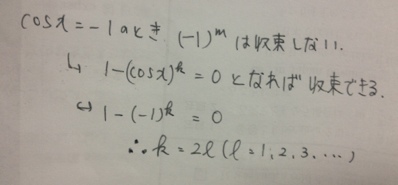 cosx=-1のとき (-1)^m は収束しない.
↳ 1-(cosx)^k = 0 となれば 収束できる.
⇔ 1-(-1)^k = 0
∴ k = 2l (l = 1, 2, 3, …)